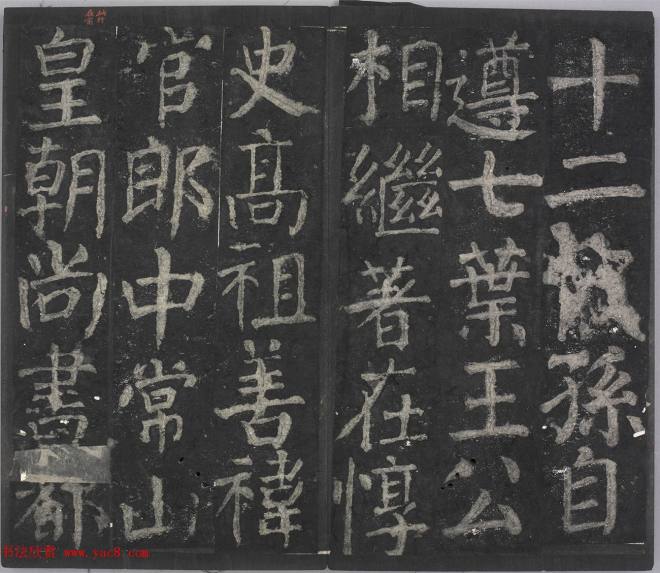 十二孫自
遵七葉王公
相繼著在惇
史高祖善禕
官郎中常山
皇朝尚書都
书法欣赏 www.yac8.com